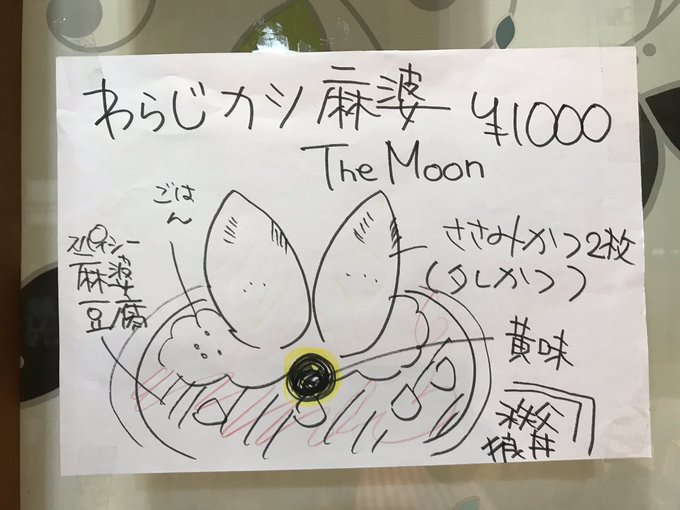 わらじカツ麻婆 ¥1000
The Moon
ごはん
スパイシー
麻婆
豆腐
ささみかつ2枚
(タレかつ)
黄味
秩父
狼丼